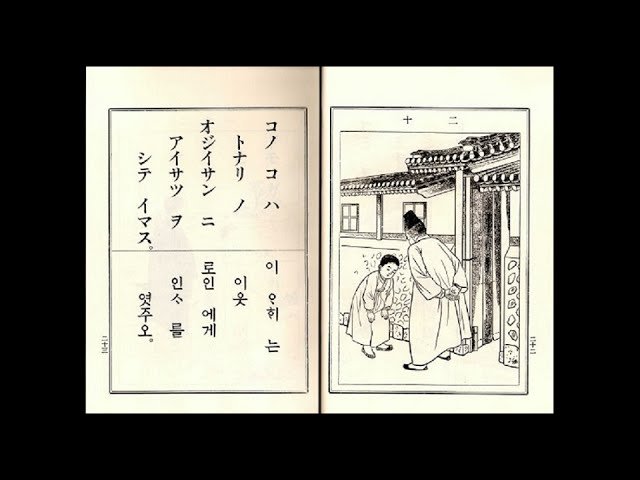 二十
二十二
コノ コハ
トナリ ノ
オジイサン ニ
アイサツ ヲ
シテ イマス。
이 ᄋᆞ희 는
이웃
로인 에게
인ᄉᆞ 를
엿주오。
二十三